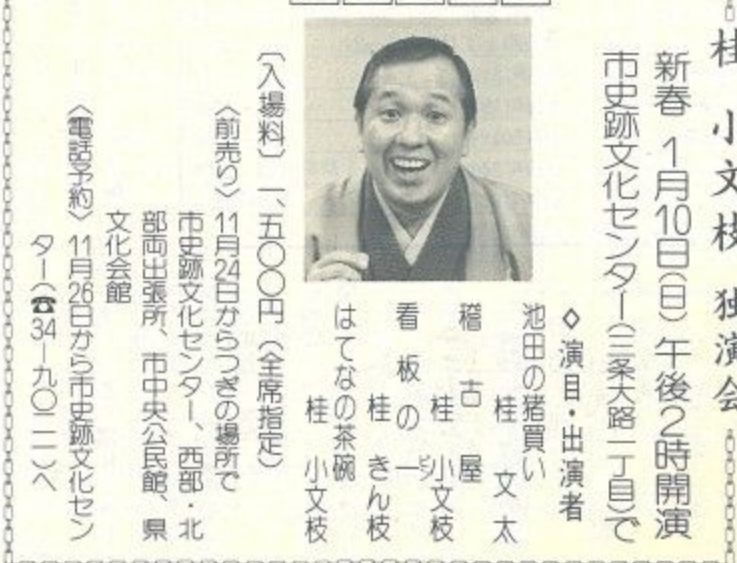 桂 小文枝 独演会
新春 1月10日(日)午後2時開演
市史跡文化センター(三条大路一丁目)で
◇演目・出演者
池田の猪買い
桂 文太
稽古屋
桂 小文枝
看板の一
ピン
桂 きん枝
はてなの茶碗
桂 小文枝
〔入場料〕 一、五〇〇円(全席指定)
〈前売り〉 11月24日からつぎの場所で
市史跡文化センター、西部・北
部両出張所、市中央公民館、県
文化会館
〈電話予約〉 11月26日から市史跡文化セン
ター(☎34―九〇二一)へ